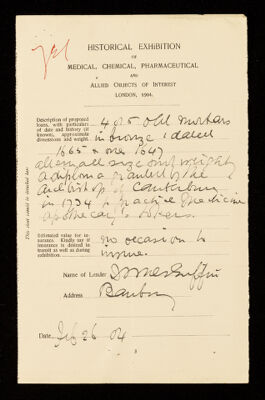 HISTORICAL EXHIBITION
OF
MEDICAL, CHEMICAL, PHARMACEUTICAL
AND
ALLIED OBJECTS OF INTEREST
LONDON, 1904.
Description of proposed loans, with particulars of date and history (if known), approximate dimensions and weight.
4 or 5 old mortars
in bronze dated
1665 & one 1647
all small size and weight
a diploma granted by the
Archbishop of Canterbury
in 1794 to practice Medicine
apothecary's
Estimated value for insurance. Kindly say if insurance is desired in transit as well as during exhibition.
no occasion to
insure.
Name of Lender
Address Banbury
Date Feb 26 04
This sheet could be detached here